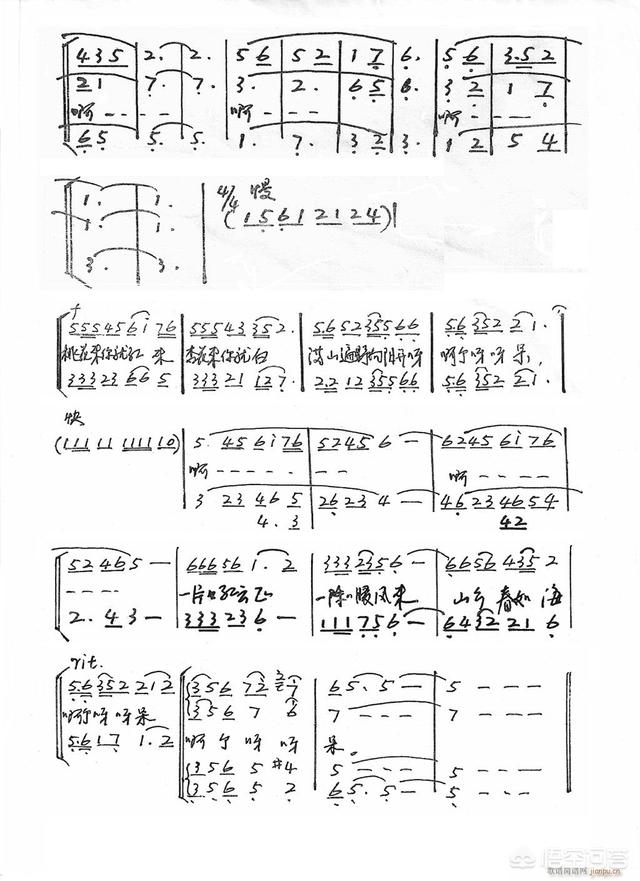 435 | 2. 2. | 56 | 52 | 17 | 6. | 56 | 3.52
21 | 7. 7. | 3. | 2. | 65 | 6. | 32 | 17
啊 - - - - 啊 - - - - 啊 - - - -
65 | 5. 5. | 1. | 7. | 32 | 3. | 12 | 54
1. | 1. | 4/4 慢
1. | 1. | (1561 2124)|
3. | 3.
f
555456i76 | 55543352. | 565235566 | 5635221.
桃花来你就红 来 杏花来你就白 满山遍野 呀 啊个呀呀呆,
33323665 | 33321127. | 2212355566 | 5635221.
快
(111 11 111110) | 5. 456i76 | 52456 — | 62456i76
啊 - - - - - - - 啊 - - - -
3 23465 | 26234 — | 4623 4654
4. 3 42
52465 — | 666561.2 | 3332356 — | 66564352
- - - - 一片 红云飞 一阵 暖风来 山乡 春如海
2. 43 — | 333236 — | 111756 — | 64322 16
rit.
56352212 | 356 72 7 | 65. 5 — | 5 - - -
356 7 6 | 7 - - - | 7 - - -
啊个呀呀呆 啊个呀呀 呆。
5617 1.2 | 356 5 #4 | 5 - - - | 5 - - -
356 5 2 | 65. 5 — | 5 - - -
悟空问答
歌谱简谱网 jianpu.cn